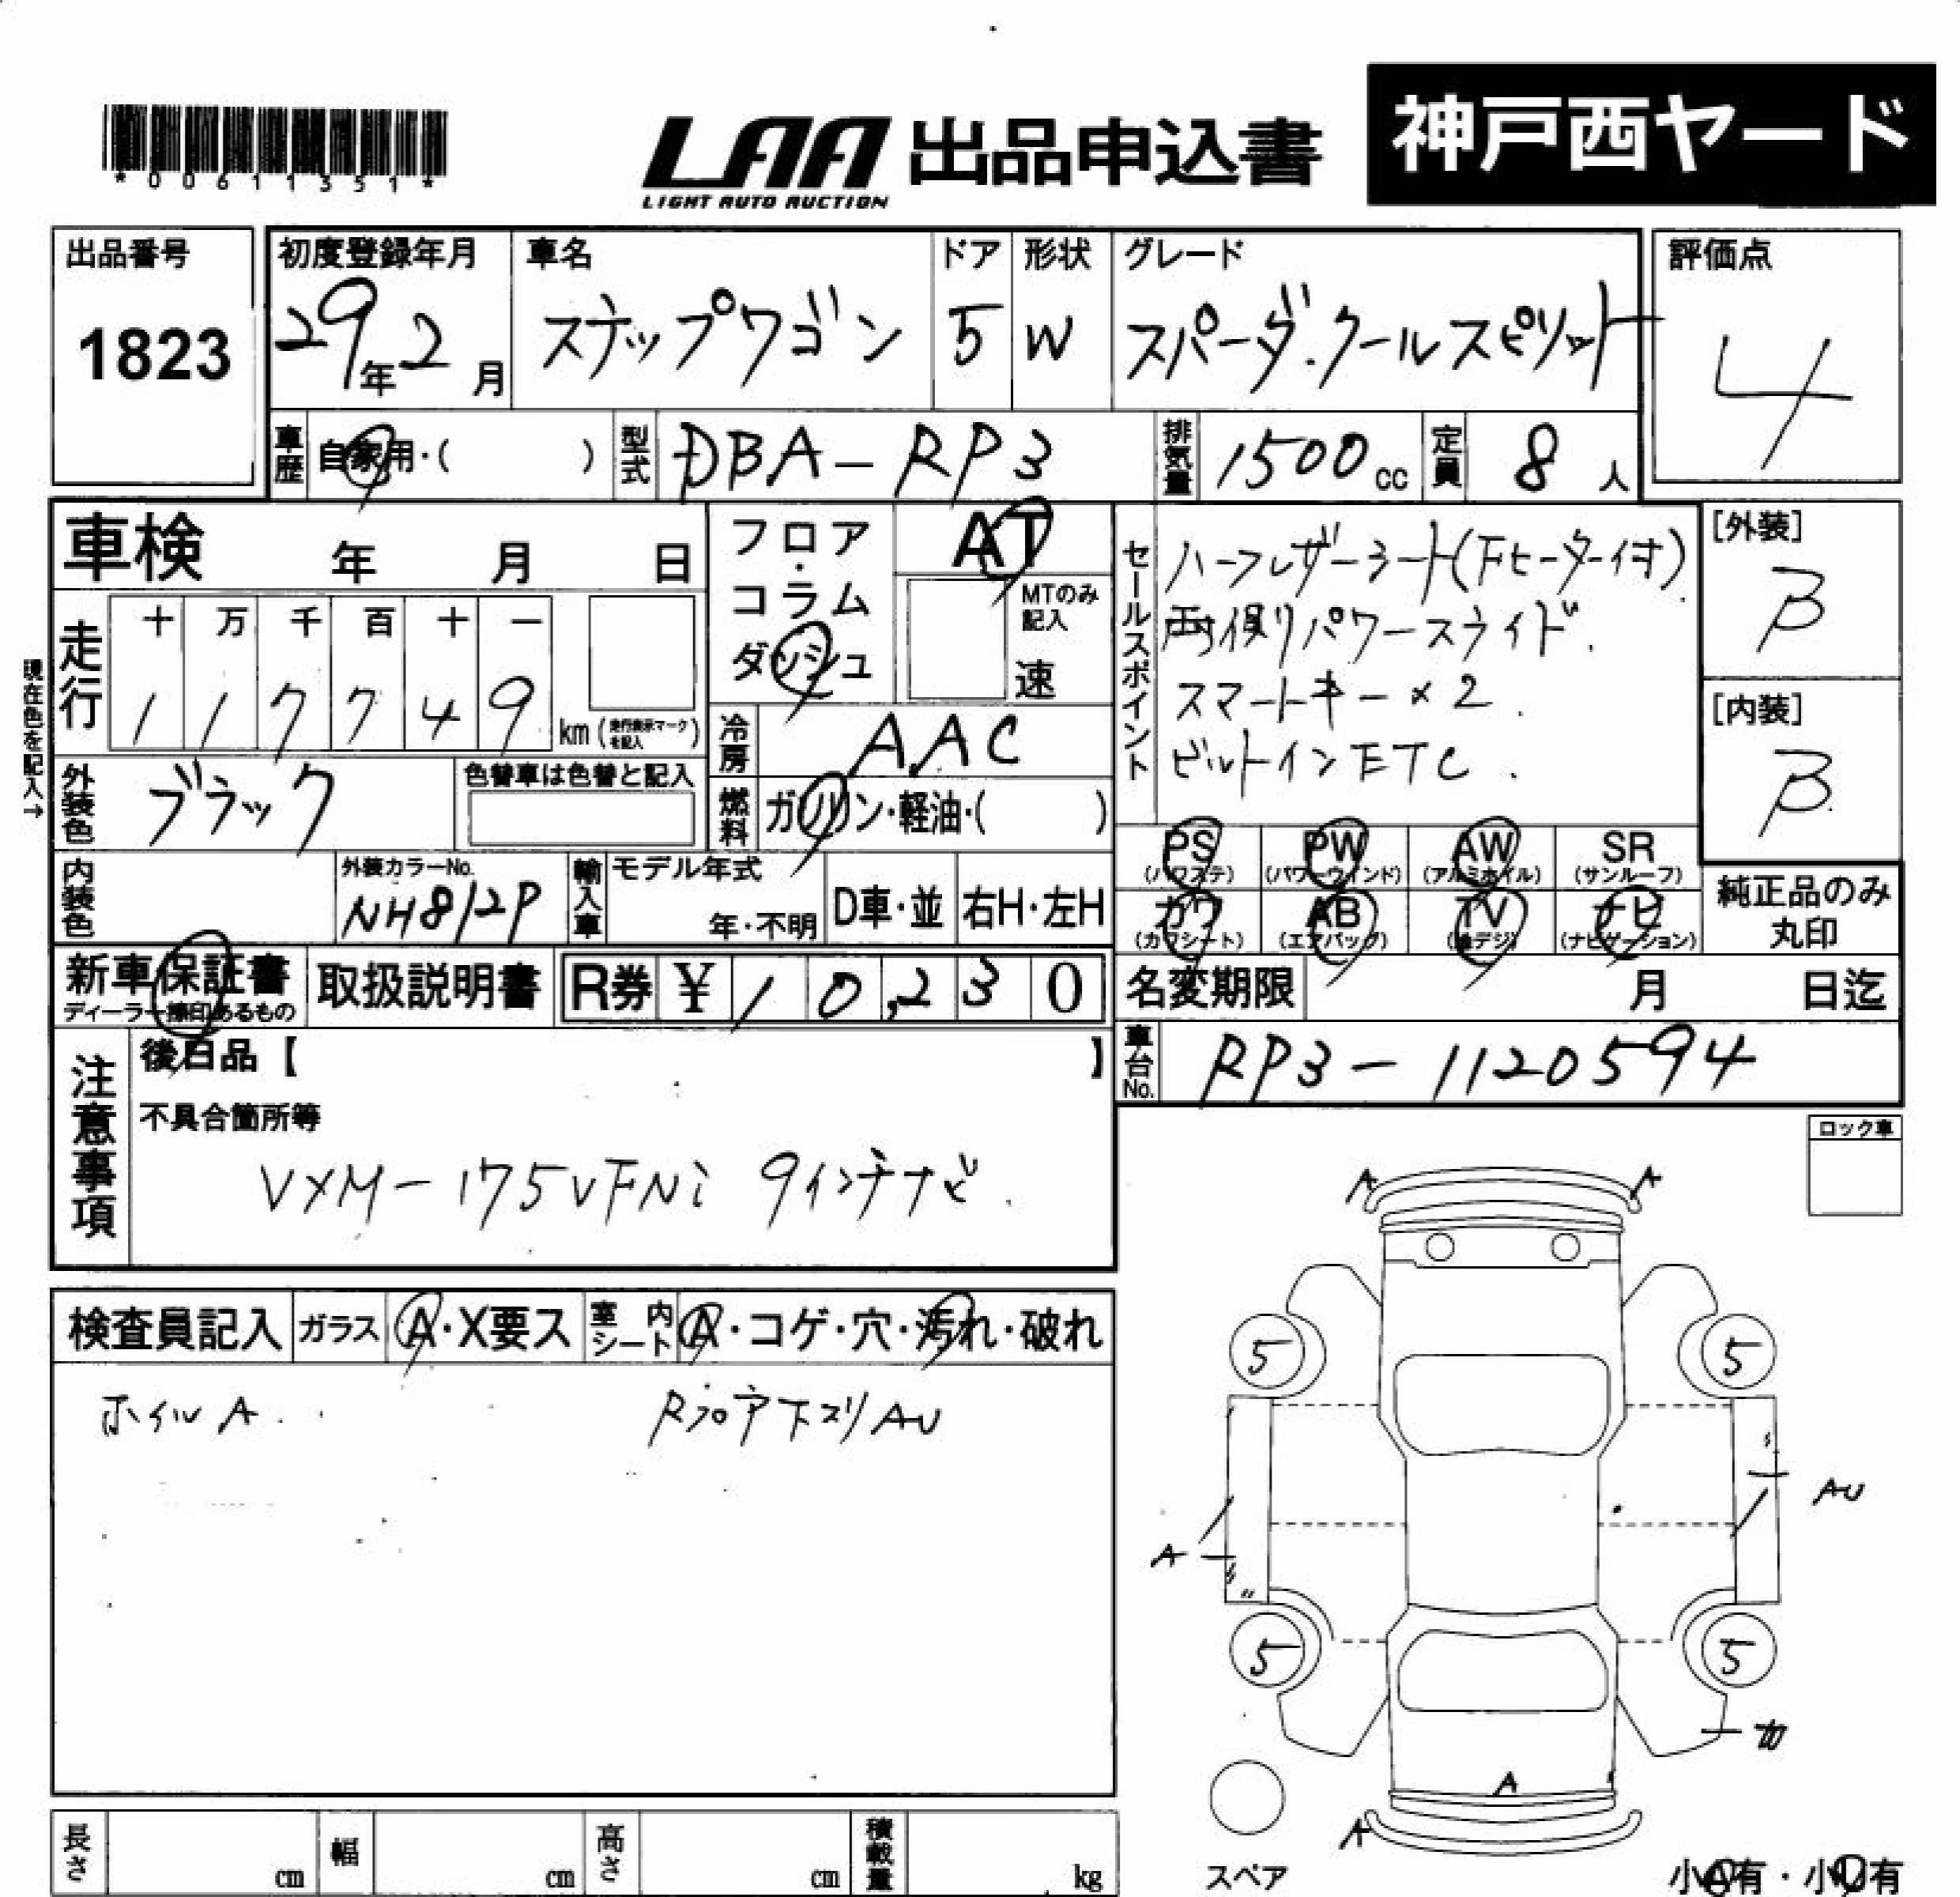 神戸西ヤード
*00611351*
LAA 出品申込書
LIGHT AUTO AUCTION
出品番号
1823
初度登録年月
29年2月
車名
ステップワゴン
ドア
5
形状
W
グレード
スパーダ.クールスピリット
評価点
4
車歴
自家用・( )
型式
DBA-RP3
排気量
1500cc
定員
8人
車検 年 月 日
フロア・コラム
ダッシュ
AT
MTのみ記入
速
セールスポイント
ハーフレザーシート(Fヒーター付)
両側パワースライド.
スマートキー×2.
ビルトインETC.
[外装]
B
[内装]
B
現在色を記入→
走行
十 万 千 百 十 一
1 1 7 7 4 9
km(走行表示マークを記入)
冷房
AAC
外装色
ブラック
色替車は色替と記入
燃料
ガソリン・軽油・( )
PS (パワステ)
PW (パワーウインド)
AW (アルミホイル)
SR (サンルーフ)
カワ (カワシート)
AB (エアバッグ)
TV (地デジ)
ナビ (ナビゲーション)
純正品のみ丸印
内装色
外装カラーNo.
NH812P
輸入車
モデル年式
年・不明
D車・並
右H・左H
新車保証書
ディーラー捺印あるもの
取扱説明書
R券 ¥ 10,230
名変期限 月 日迄
車台No.
RP3-1120594
注意事項
後日品【 】
不具合箇所等
VXM-175VFNi 9インチナビ.
ロック車
検査員記入
ガラス
A・X要ス
室内シート
A・コゲ・穴・汚れ・破れ
ホイルA.
Rフロア下スリAU
A A
5 5
AU
A
5 5
A
A
スペア
長さ cm
幅 cm
高さ cm
積載量 kg
小A有・小U有